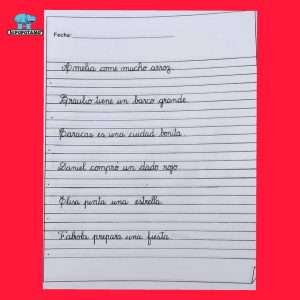 ELPOPOTAMO
Fecha:
Amelia come mucho arroz.
Braulio tiene un barco grande.
Caracas es una ciudad bonita.
Daniel compró un dado rojo.
Elisa pinta una estrella.
Fabiola prepara una fiesta.